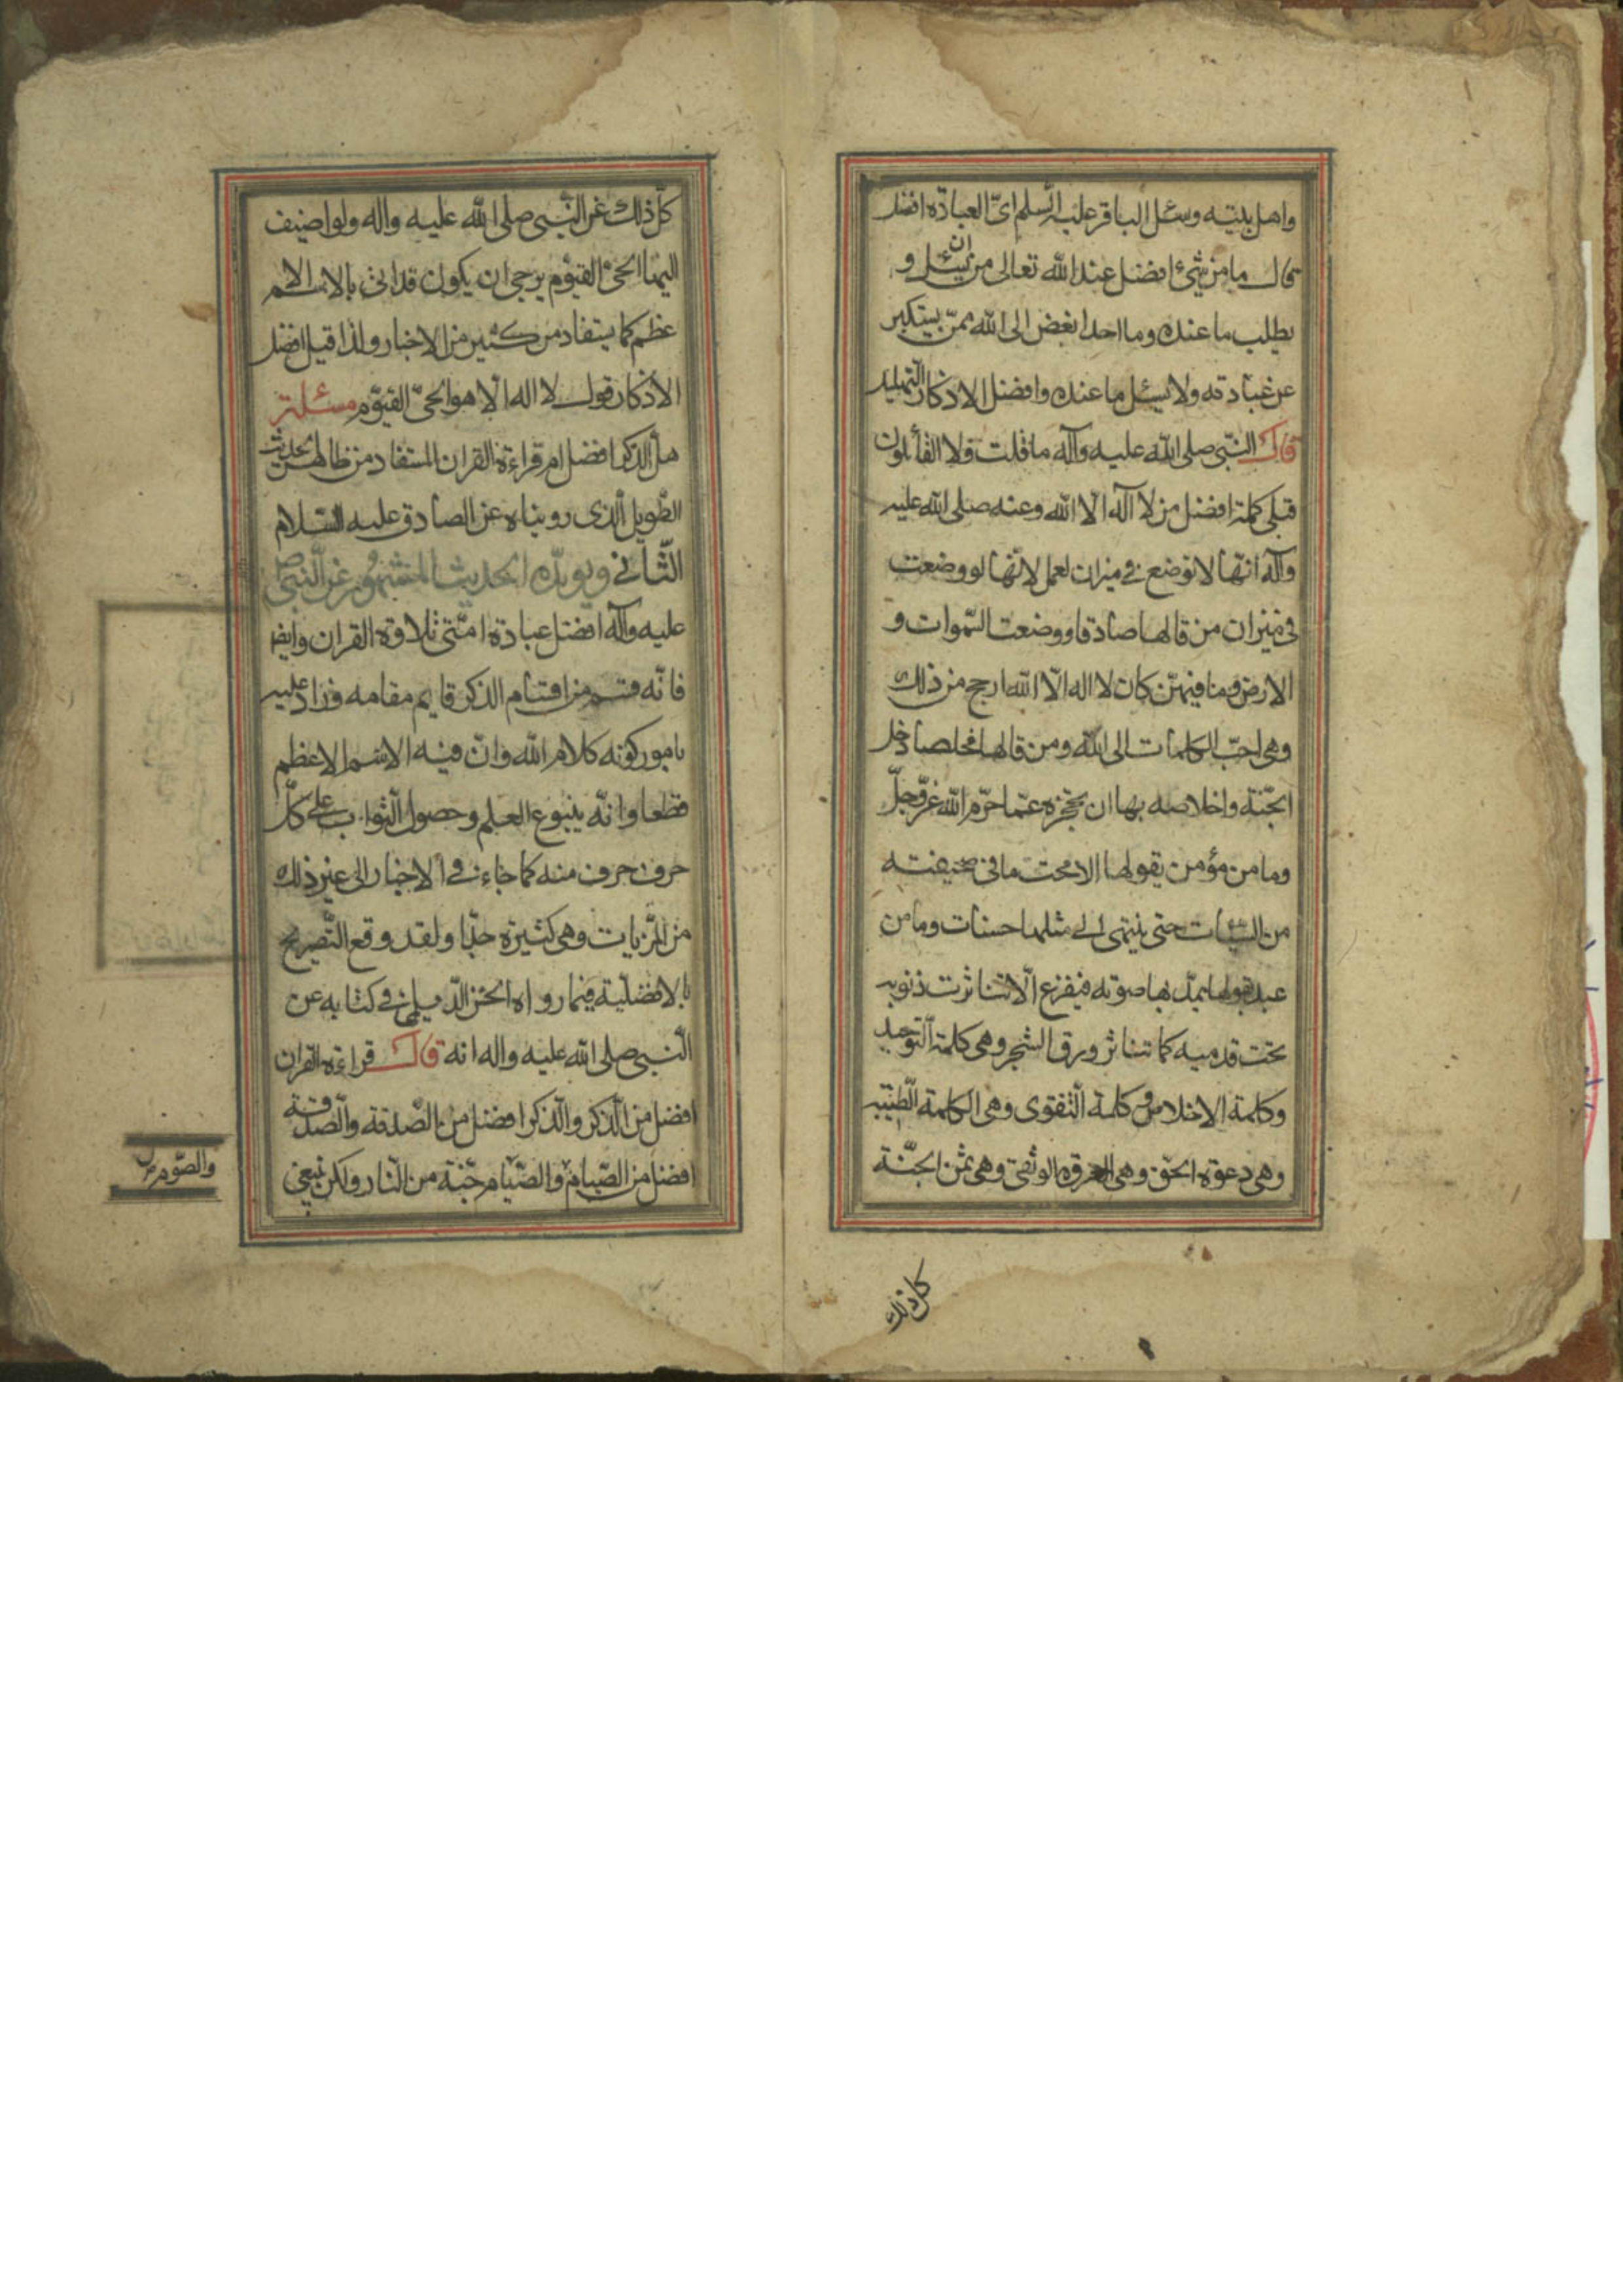 واهل بيته وسئل الباقر عليه السلم اىّ العبادة افضل
قال ما من شئ افضل عند الله تعالى من ان يسئل و
يطلب ما عنده وما احد ابغض الى الله ممّن يستكبر
عن عبادته ولا يسئل ما عنده وافضل الاذكار التهليل
قال النّبى صلى الله عليه وآله ما قلت ولا القائلون
قبلى كلمة افضل من لا اله الا الله وعنه صلى الله عليه
وآله انّها لا توضع فى ميزان لعمل لانّها لو وضعت
فى ميزان من قالها صادقا ووضعت السّموات و
الارض وما فيهنّ كان لا اله الّا الله ارجح من ذلك
وهى احبّ الكلمات الى الله ومن قالها مخلصا دخل
الجّنة واخلاصه بها ان يحجزه عمّا حرّم الله عزّوجلّ
وما من مؤمن يقولها الا محت ما فى صحيفته
من السّيئات حتى ينتهى الى مثلها حسنات وما من
عبد يقولها يمدّ بها صوته فيفزع الّا تناثرت ذنوبه
تحت قدميه كما تناثر ورق الشجر وهى كلمة التّوحيد
وكلمة الاخلاص وكلمة التّقوى وهى الكلمة الطّيّبه
وهى دعوة الحقّ وهى العروة الوثقى وهى ثمن الجنّة
كل ذلك
كلّ ذلك عن النّبى صلى الله عليه واله ولو اضيف
اليها الحىّ القيّوم يرجى ان يكون قد اتى بالاسم الا
عظم كما يستفاد من كثير من الاخبار ولذا قيل افضل
الاذكار قول لا اله الّا هو الحىّ القيّوم مسئلة
هل الذكر افضل ام قراءة القران المستفاد من ظاهر الحديث
الطّويل الّذى رويناه عن الصادق عليه السّلام
الثّانى ويويّده الحديث المشهور عن النّبى صلى الله
عليه وآله افضل عبادة امّتى تلاوة القران وايضا
فانّه قسم من اقسام الذكر قايم مقامه وزاد عليه
بامور كونه كلام الله وانّ فيه الاسم الاعظم
قطعا وانّه ينبوع العلم وحصول الثّواب على كلّ
حرف حرف منه كما جاء فى الاخبار الى غير ذلك
من المزيات وهى كثيرة جدّا ولقد وقع التّصريح
بالافضليّة فيما رواه الحسن الدّيلمى فى كتابه عن
النّبى صلى الله عليه واله انه قال قراءة القران
افضل من الذّكر والذّكر افضل من الصّدقة والصّدقة
افضل من الصّيام والصّيام جنّة من النّار ولكن ينبغى
والصّوم